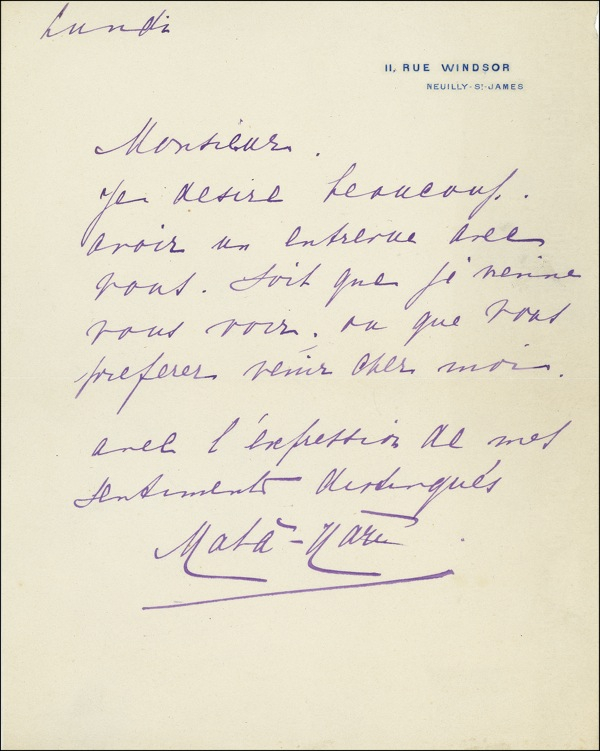 Lundi
11, RUE WINDSOR
NEUILLY-ST-JAMES
Monsieur.
Je desire beaucoup.
avoir un entrevue avec
vous. Soit que je vienne
vous voir. ou que vous
preferer venir cher moi.
avec l'éxpression de mes
sentiments distingués
Mata-Hari